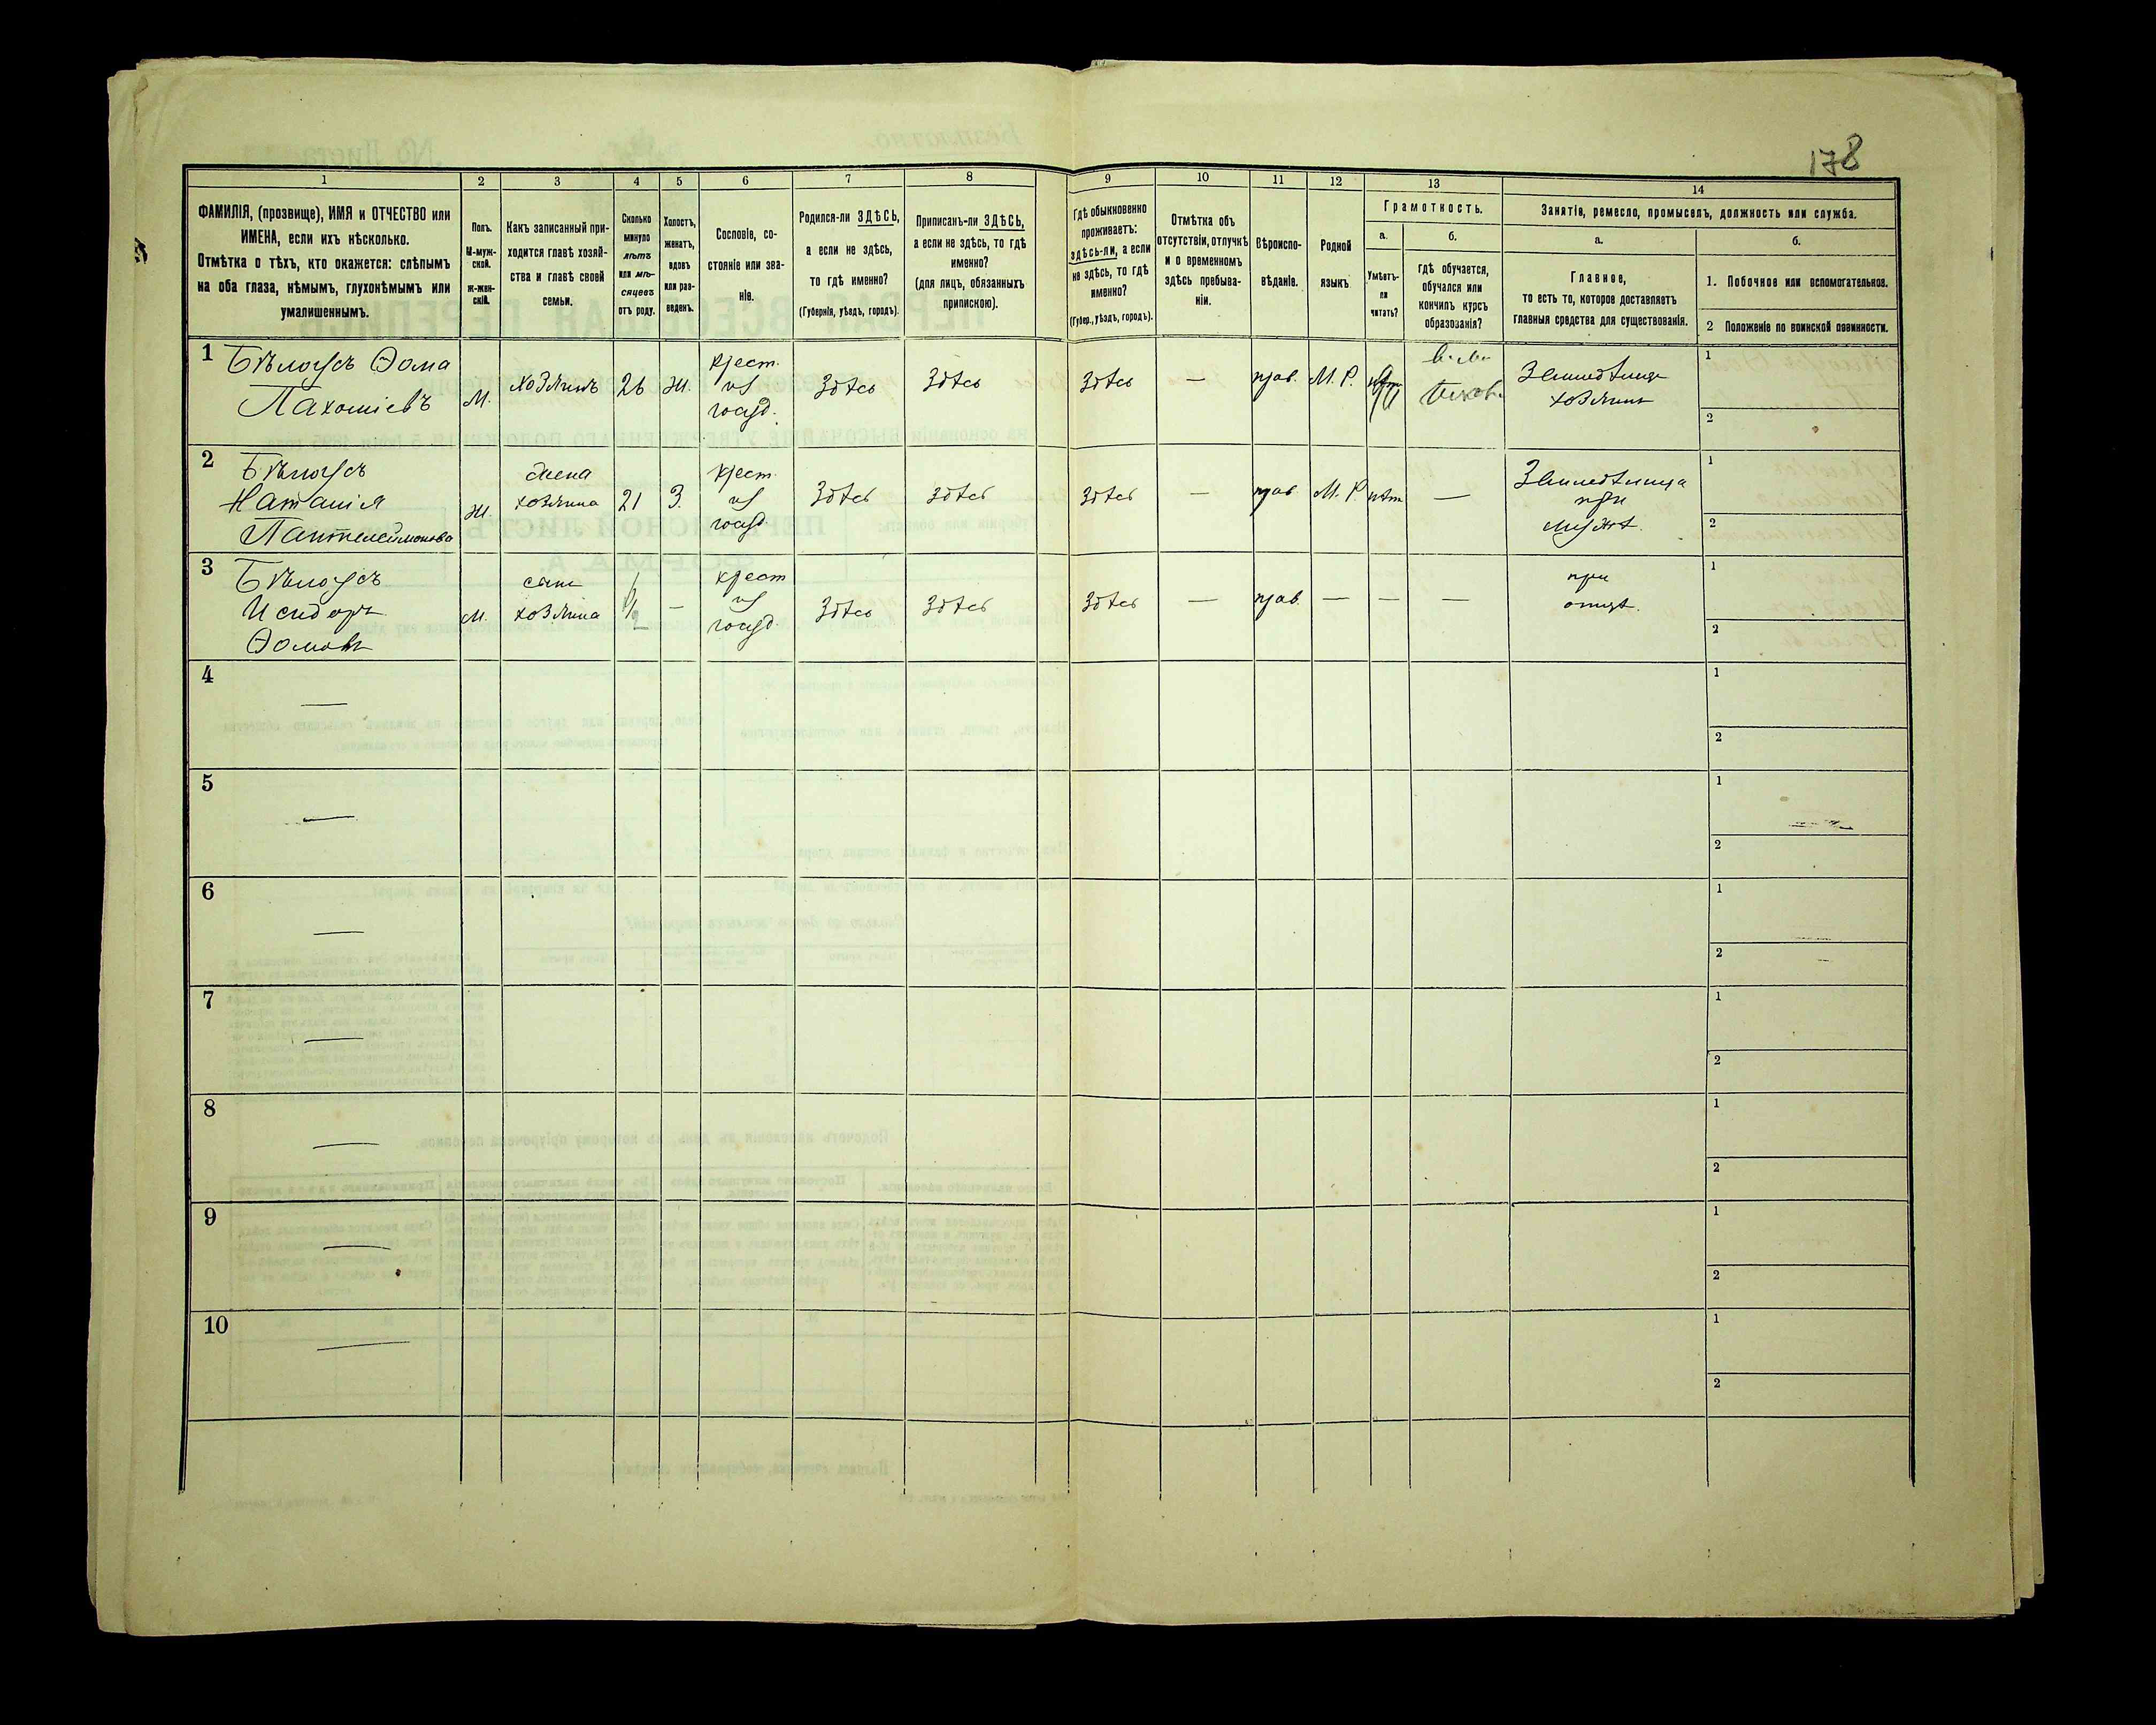 178
1
2
3
4
5
6
7
8
9
10
11
12
13
14
ФАМИЛІЯ, (прозвище), ИМЯ и ОТЧЕСТВО или
ИМЕНА, если ихъ нѣсколько.
Отмѣтка о тѣхъ, кто окажется: слѣпымъ
на оба глаза, нѣмымъ, глухонѣмымъ или
умалишеннымъ.
Полъ.
М-муж-
ской.
ж-жен-
скій.
Какъ записанный при-
ходится главѣ хозяй-
ства и главѣ своей
семьи.
Сколько
минуло
лѣтъ
или мѣ-
сяцевъ
отъ роду.
Холостъ,
женатъ,
вдовъ
или раз-
веденъ.
Сословіе, со-
стояніе или зва-
ніе.
Родился-ли ЗДѢСЬ,
а если не здѣсь,
то гдѣ именно?
(Губернія, уѣздъ, городъ).
Приписанъ-ли ЗДѢСЬ,
а если не здѣсь, то гдѣ
именно?
(для лицъ, обязанныхъ
припискою).
Гдѣ обыкновенно
проживаетъ:
здѣсь-ли, а если
не здѣсь, то гдѣ
именно?
(Губер., уѣздъ, городъ).
Отмѣтка объ
отсутствіи, отлучкѣ
и о временномъ
здѣсь пребыва-
ніи.
Вѣроиспо-
вѣданіе.
Родной
языкъ.
Грамотность.
а.
Умѣетъ-
ли
читать?
б.
гдѣ обучается,
обучался или
кончилъ курсъ
образованія?
Занятіе, ремесло, промыселъ, должность или служба.
а.
Главное,
то есть то, которое доставляетъ
главныя средства для существованія.
б.
1. Побочное или вспомогательное.
2 Положеніе по воинской повинности.
1 Бѣлоусъ Ѳома
Пахоміевъ
М.
хозяинъ
26
Ж.
крест.
из
госуд.
Здѣсь
Здѣсь
Здѣсь
—
прав.
М. Р.
Земледѣлецъ
хозяинъ
1
2
2 Бѣлоусъ
Наталія
Пантелеймонова
ж.
жена
хозяина
21
З.
крест
из
госуд.
Здѣсь
здѣсь
здѣсь
—
прав
М. Р.
нѣт
—
Земледѣлица
при
мужѣ.
1
2
3 Бѣлоусъ
Исидоръ
Ѳомовъ
М.
сынъ
хозяина
—
крест
из
госуд.
Здѣсь
Здѣсь
Здѣсь
—
прав.
—
—
—
при
отцѣ.
1
2
4
—
1
2
5
—
1
2
6
—
1
2
7
—
1
2
8
—
1
2
9
—
1
2
10
—
1
2